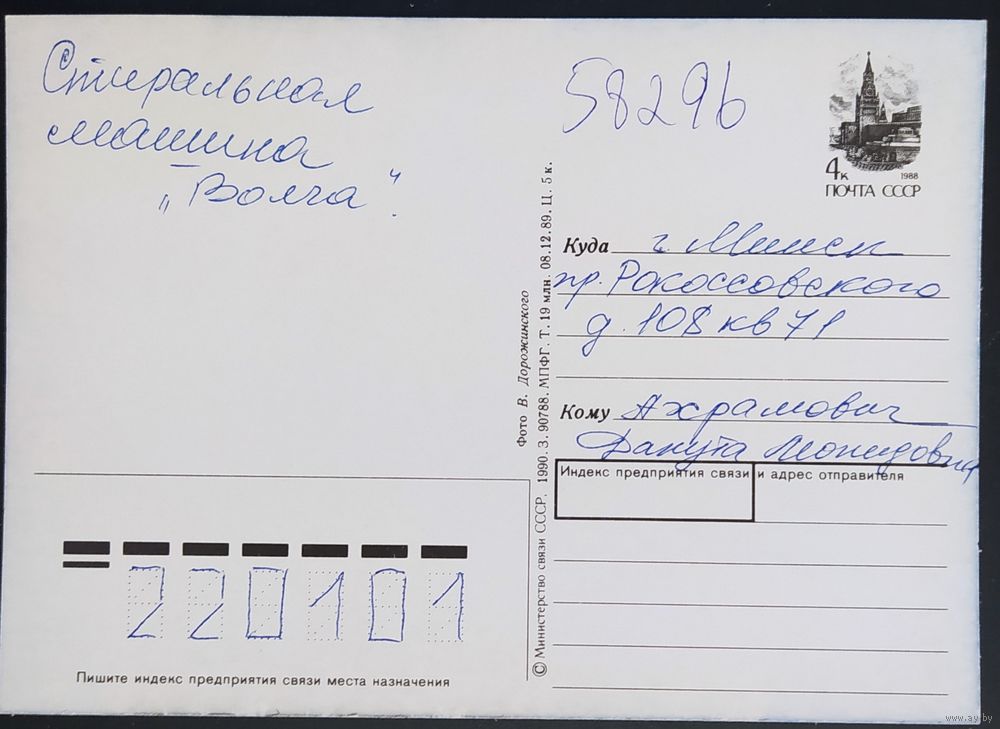 Стиральная
машина
„Волга".
58296
4к
1988
ПОЧТА СССР
Куда г. Минск
пр. Рокоссовского
д. 108 кв 71
Кому Ахрамович
Данута Леонидовна
Индекс предприятия связи и адрес отправителя
© Министерство связи СССР. 1990. З. 90788. МПФГ. Т. 19 млн. 08.12.89. Ц. 5 к.
Фото В. Дорожинского
220101
Пишите индекс предприятия связи места назначения
www.ay.by